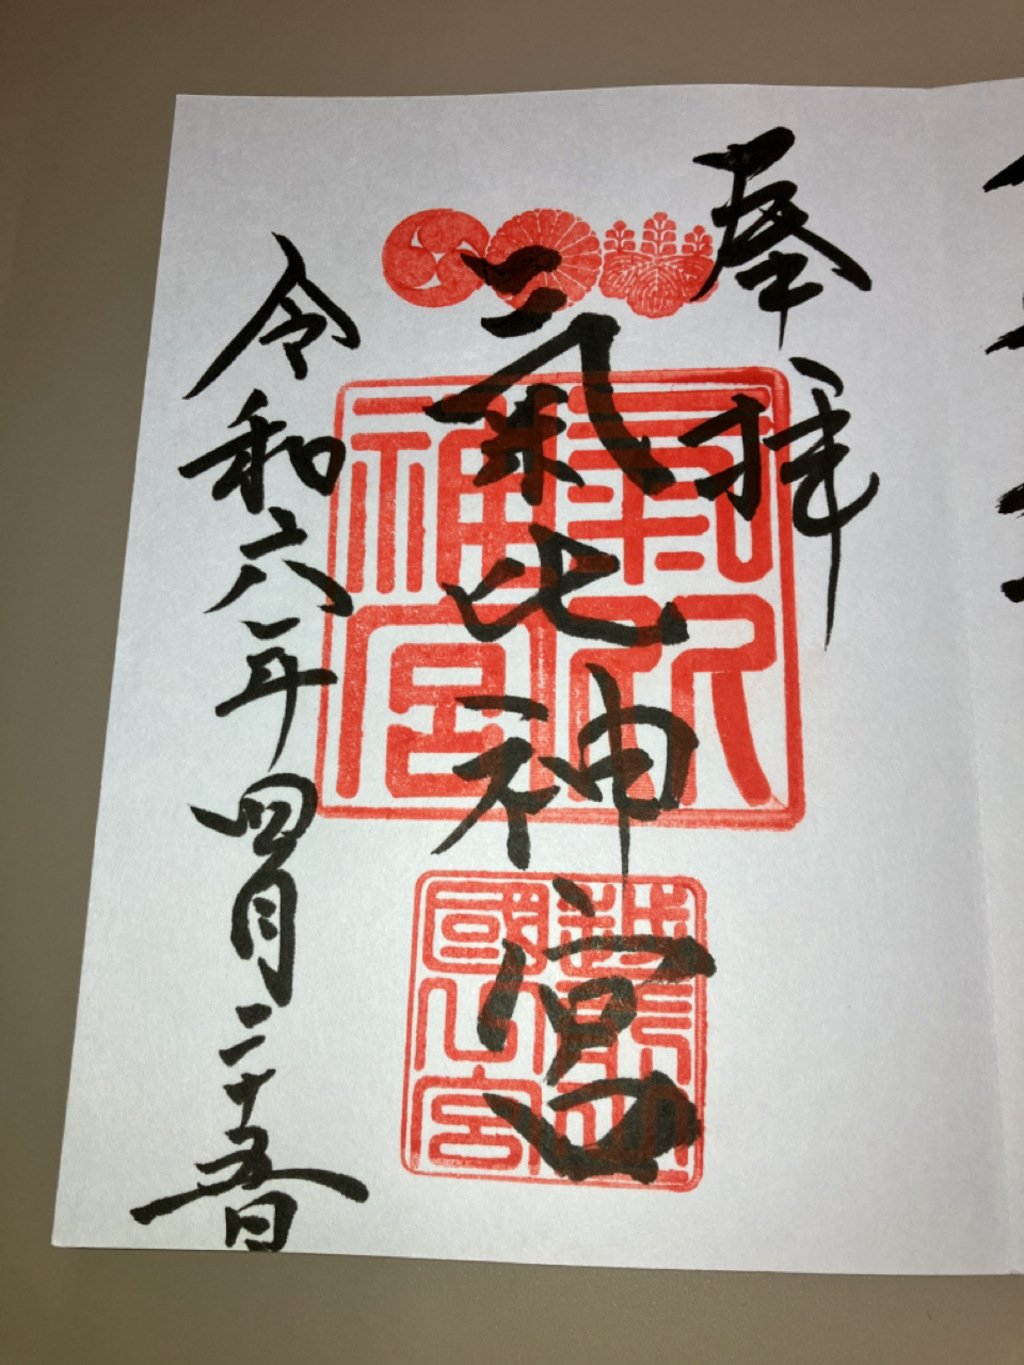 奉拝
氣比神宮
令和六年四月二十五日
氣比神宮
越前國一宮